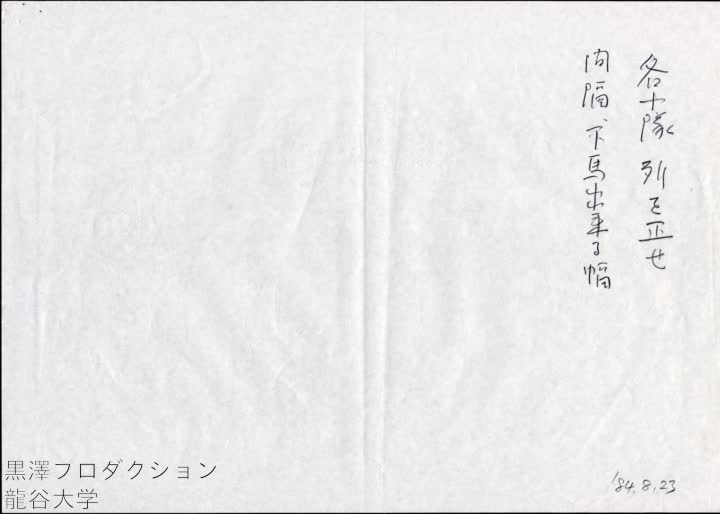 各小隊 列を正せ
間隔 下馬出来る幅
'84.8.23
黒澤プロダクション
龍谷大学